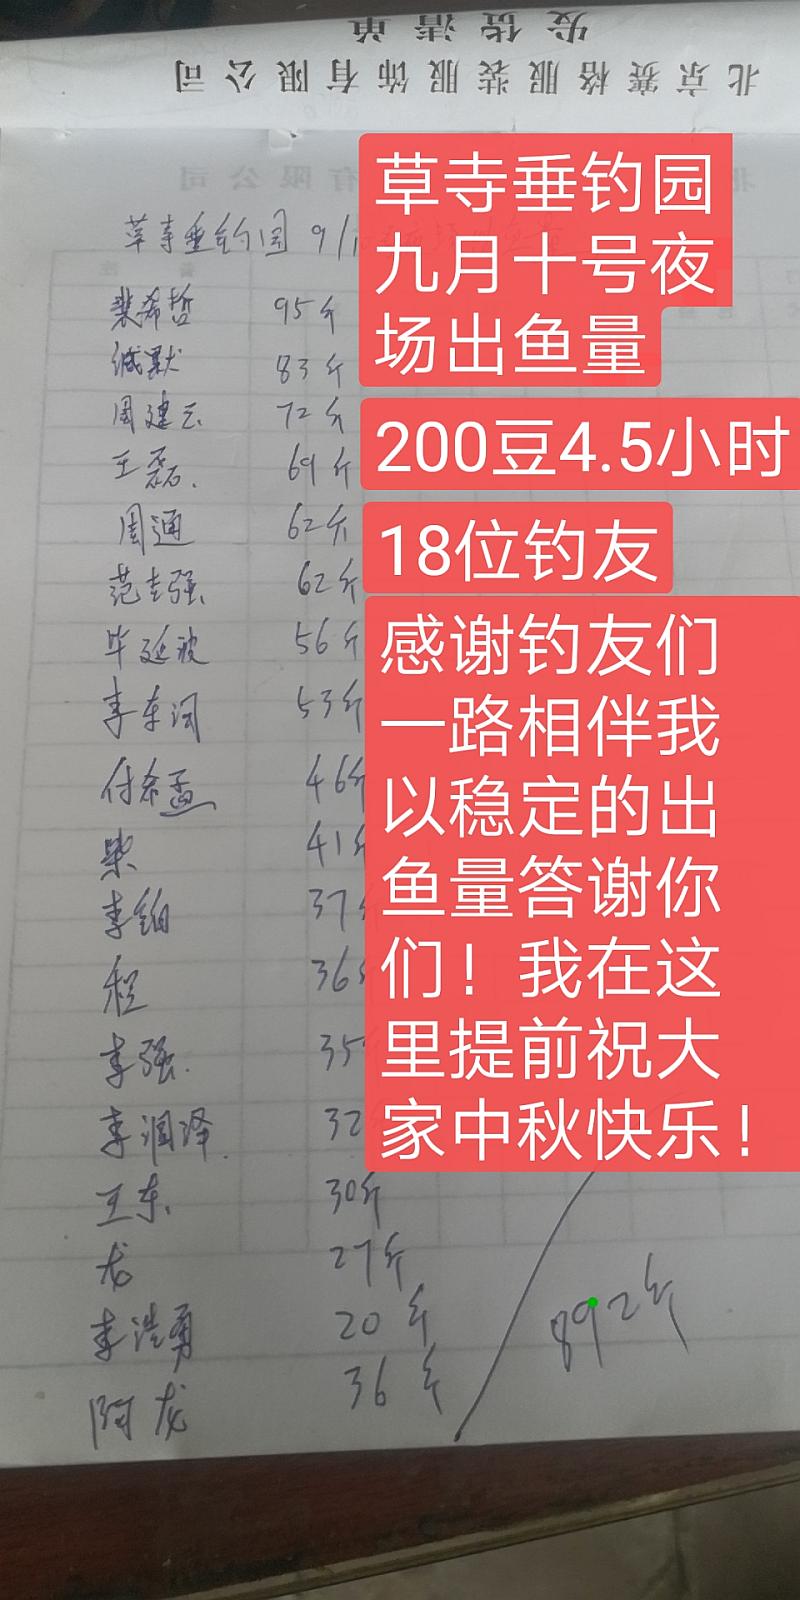 发货清单
北京赛格服装服饰有限公司
草寺垂钓园
九月十号夜
场出鱼量
200豆4.5小时
18位钓友
感谢钓友们
一路相伴我
以稳定的出
鱼量答谢你
们！我在这
里提前祝大
家中秋快乐！
草寺垂钓园 9/
裴希哲 95斤
缄默 83斤
周建云 72斤
王磊 69斤
周通 62斤
范志强 62斤
毕延波 56斤
李东润 53斤
付希孟 46斤
柴 41斤
李铂 37
程 36
李强 35
李润泽 32
王东 30斤
龙 27斤
李浩勇 20斤
阿龙 36斤
892斤